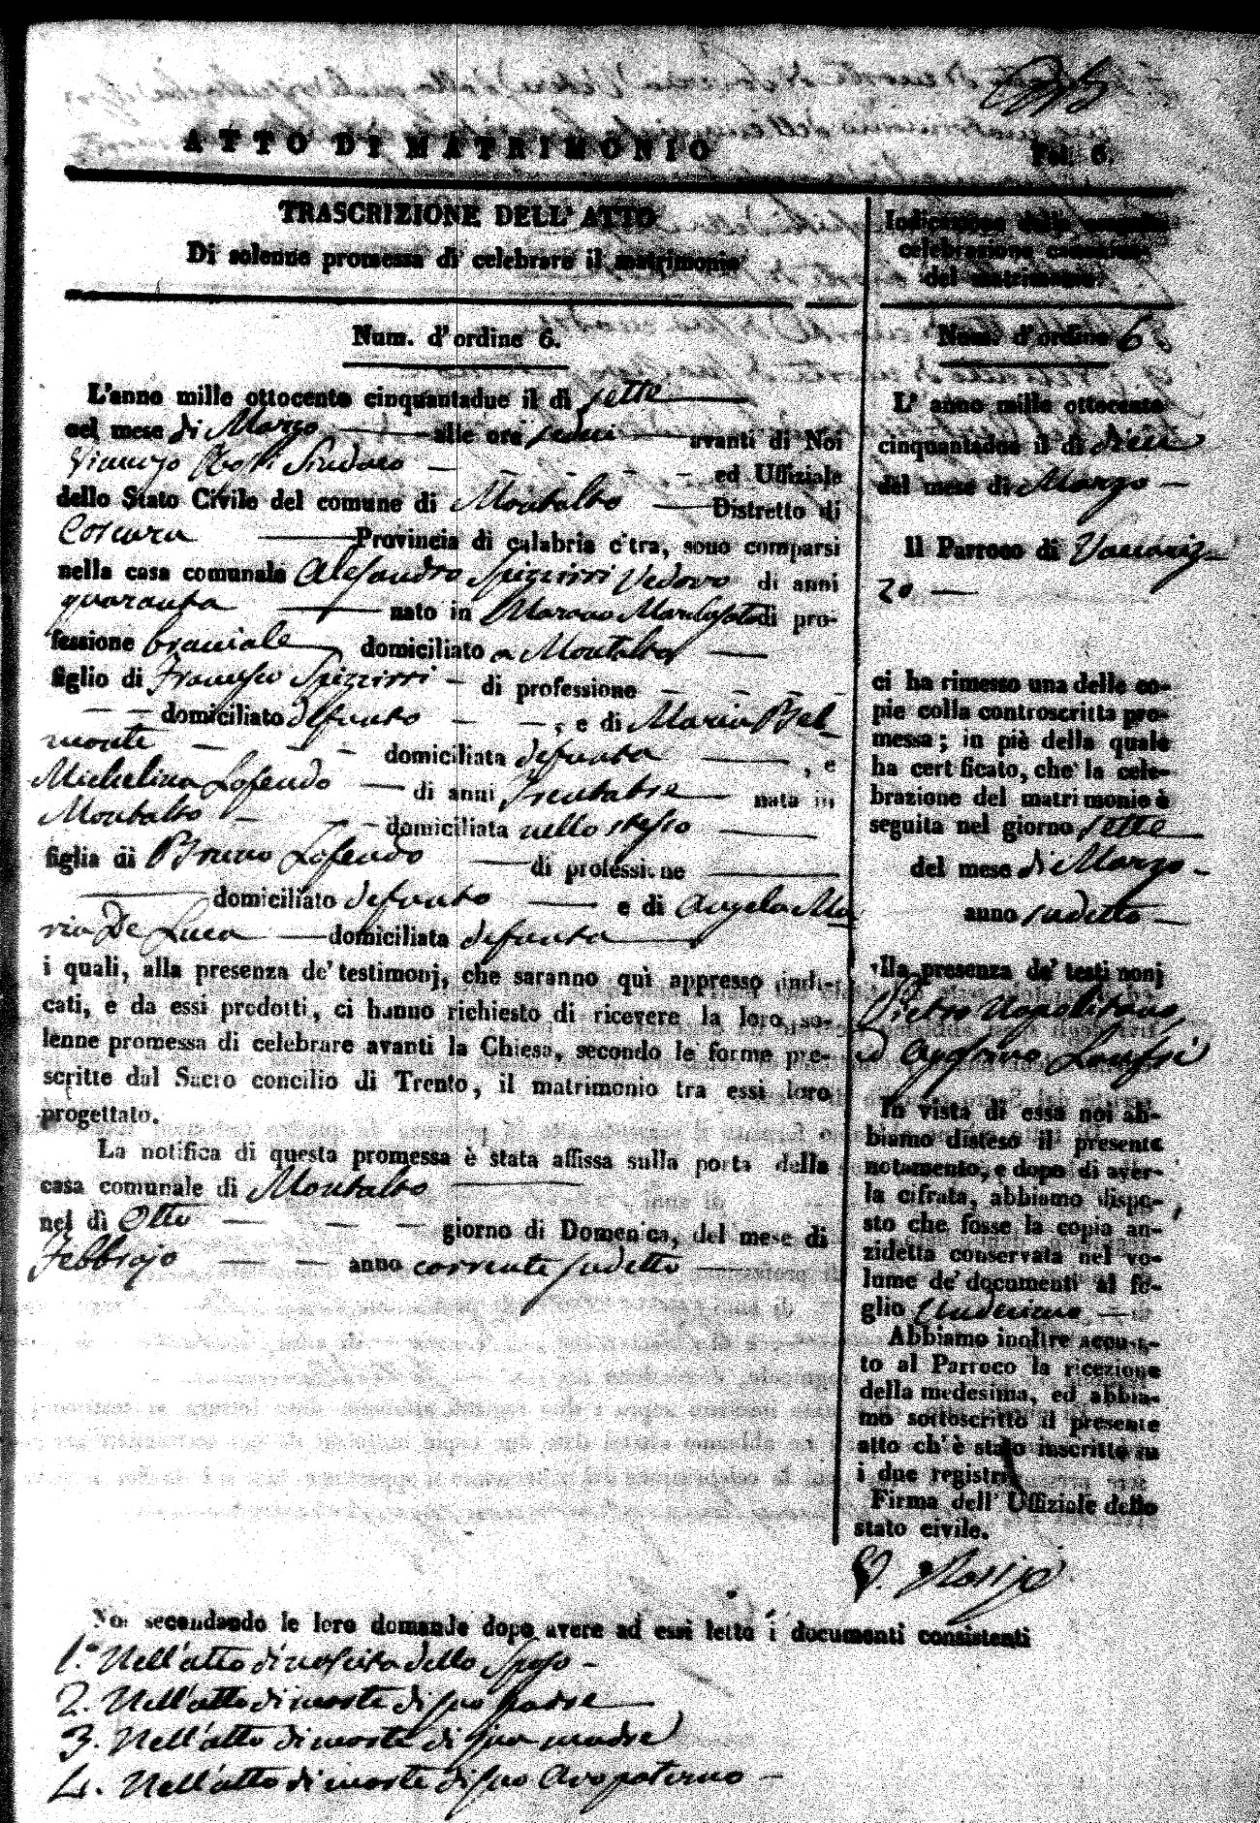 ATTO DI MATRIMONIO
Fol. 6.
TRASCRIZIONE DELL' ATTO
Di solenne promessa di celebrare il matrimonio
Num. d'ordine 6.
L'anno mille ottocento cinquantadue il dì sette
nel mese di Marzo alle ore sedici avanti di Noi
Sindaco ed Uffiziale
dello Stato Civile del comune di Montalto Distretto di
Cosenza Provincia di calabria c'tra, sono comparsi
nella casa comunale Alesandro Spizzirri Vedovo di anni
quaranta nato in Marano Marchesato di pro-
fessione bracciale domiciliato a Montalto
figlio di Francesco Spizzirri di professione
domiciliato defunto ; e di Maria Bel-
monte domiciliata defunta , e
Michelina Lofendo di anni Trentatre nata in
Montalto domiciliata nello stesso
figlia di Bruno Lofendo di professione
domiciliato defunto e di Angela Ma
ria De Luca domiciliata defunta
i quali, alla presenza de' testimonj, che saranno quì appresso indi-
cati, e da essi prodotti, ci hanno richiesto di ricevere la loro so-
lenne promessa di celebrare avanti la Chiesa, secondo le forme pre-
scritte dal Sacro concilio di Trento, il matrimonio tra essi loro
progettato.
La notifica di questa promessa è stata affissa sulla porta della
casa comunale di Montalto
nel dì Otto giorno di Domenica, del mese di
Febbrajo anno corrente sudetto
celebrazione
del matrimonio.
Num. d'ordine 6.
L' anno mille ottocento
cinquantadue il di dieci
del mese di Marzo
Il Parroco di Vaccariz-
zo
ci ha rimesso una delle co-
pie colla controscritta pro-
messa; in piè della quale
ha cert ficato, che la cele-
brazione del matrimonio è
seguita nel giorno sette
del mese di Marzo
anno sudetto
lla presenza de' testi nonj
Pietro Napolitano,
ed
In vista di essa noi ab-
biamo disteso il presente
notamento, e dopo di aver-
la cifrata, abbiamo dispo-
sto che fosse la copia an-
zidetta conservata nel vo-
lume de' documenti al fo-
glio
Abbiamo inoltre accusa-
to al Parroco la ricezione
della medesima, ed abbia-
mo sottoscritto il presente
atto ch'è stato inscritto su
i due registri
Firma dell' Uffiziale dello
stato civile.
Noi secondando le loro domande dopo avere ad essi letto i documenti consistenti
1.° Nell'atto di nascita dello Sposo
2. Nell'atto di morte di suo padre
3. Nell'atto di morte di sua madre
4. Nell'atto di morte di suo Avo paterno